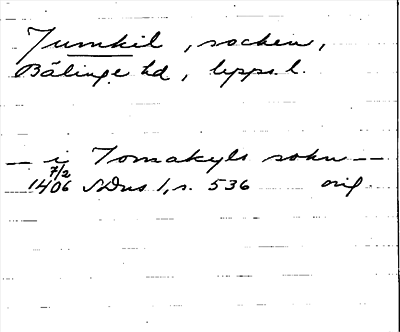 Jumkil, socken,
Bälinge hd, Upps. l.
— i Tomakyls sokn —
7/2
1406 SDns 1, s. 536 orig.